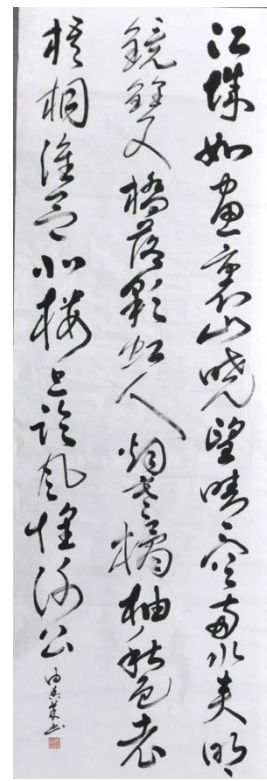 江城如畫裏山曉望晴空兩水夾明
鏡雙橋落彩虹人烟寒橘柚秋色老
梧桐誰念北樓上臨風懷謝公